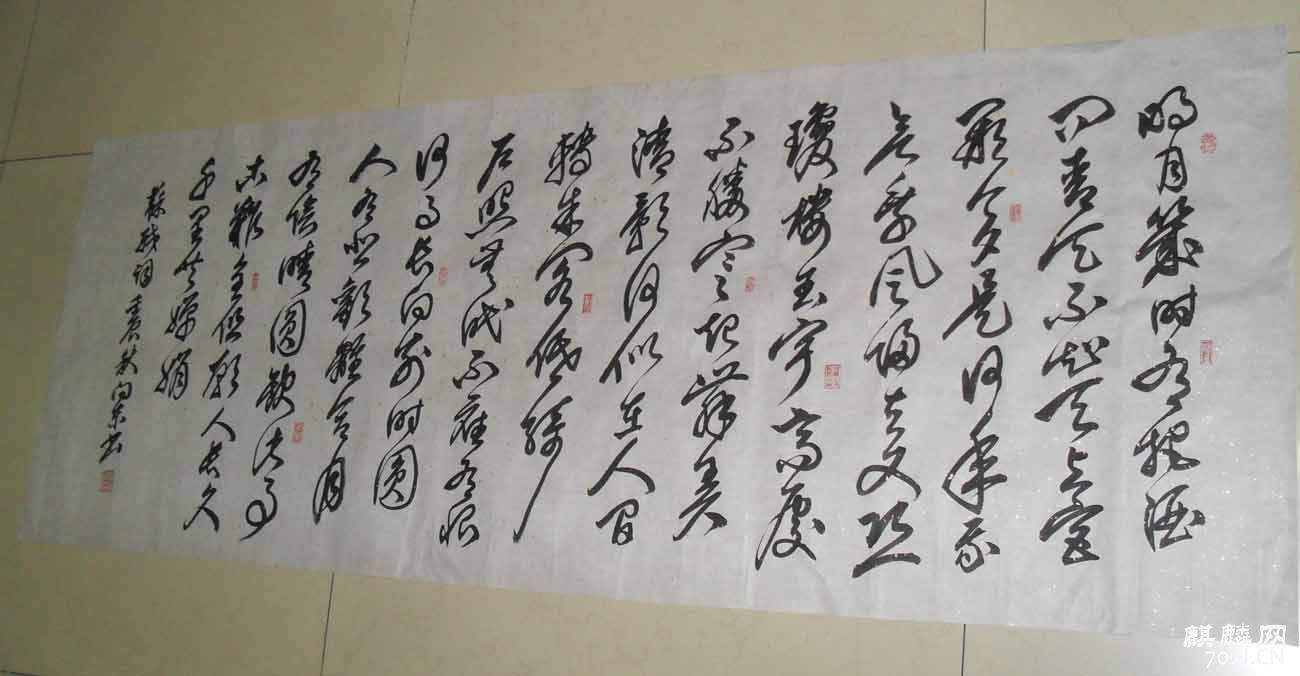 明月幾时有把酒
问青天不知天上宫
闕今夕是何年我
欲乘风归去又恐
瓊楼玉宇高處
不勝寒起舞弄
清影何似在人间
轉朱阁低綺
户照无眠不應有恨
何事长向别时圆
人有悲歡離合月
有陰晴圆缺此事
古難全但願人长久
千里共嬋娟
蘇軾词 壬辰 向东书
麒麟网